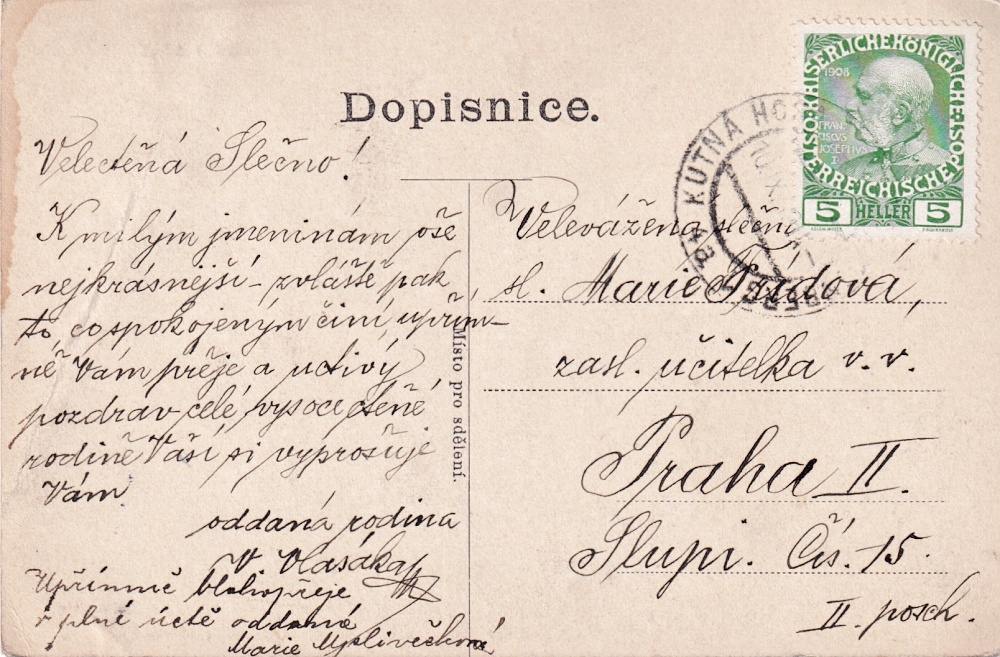 Dopisnice.
Velectěná Slečno!
K milým jmeninám vše
nejkrásnější – zvláště pak
to, co spokojeným činí, upřím-
ně Vám přeje a uctivý
pozdrav celé, vysoce ctěné
rodině Vaší si vyprošuje
Vám
oddaná rodina
V. Vlasáka
Upřímně blahopřeje
v plné úctě oddaná
Marie
Místo pro sdělení.
KAISERLICHE KÖNIGLICHE
ÖSTERREICHISCHE POST
1908
FRAN
CISCVS
JOSEPHVS
I
5 HELLER 5
KUTNÁ HORA
Velevážená slečna
sl. Marie
zasl. učitelka v. v.
Praha II.
Slupi. Čís. 15.
II. posch.